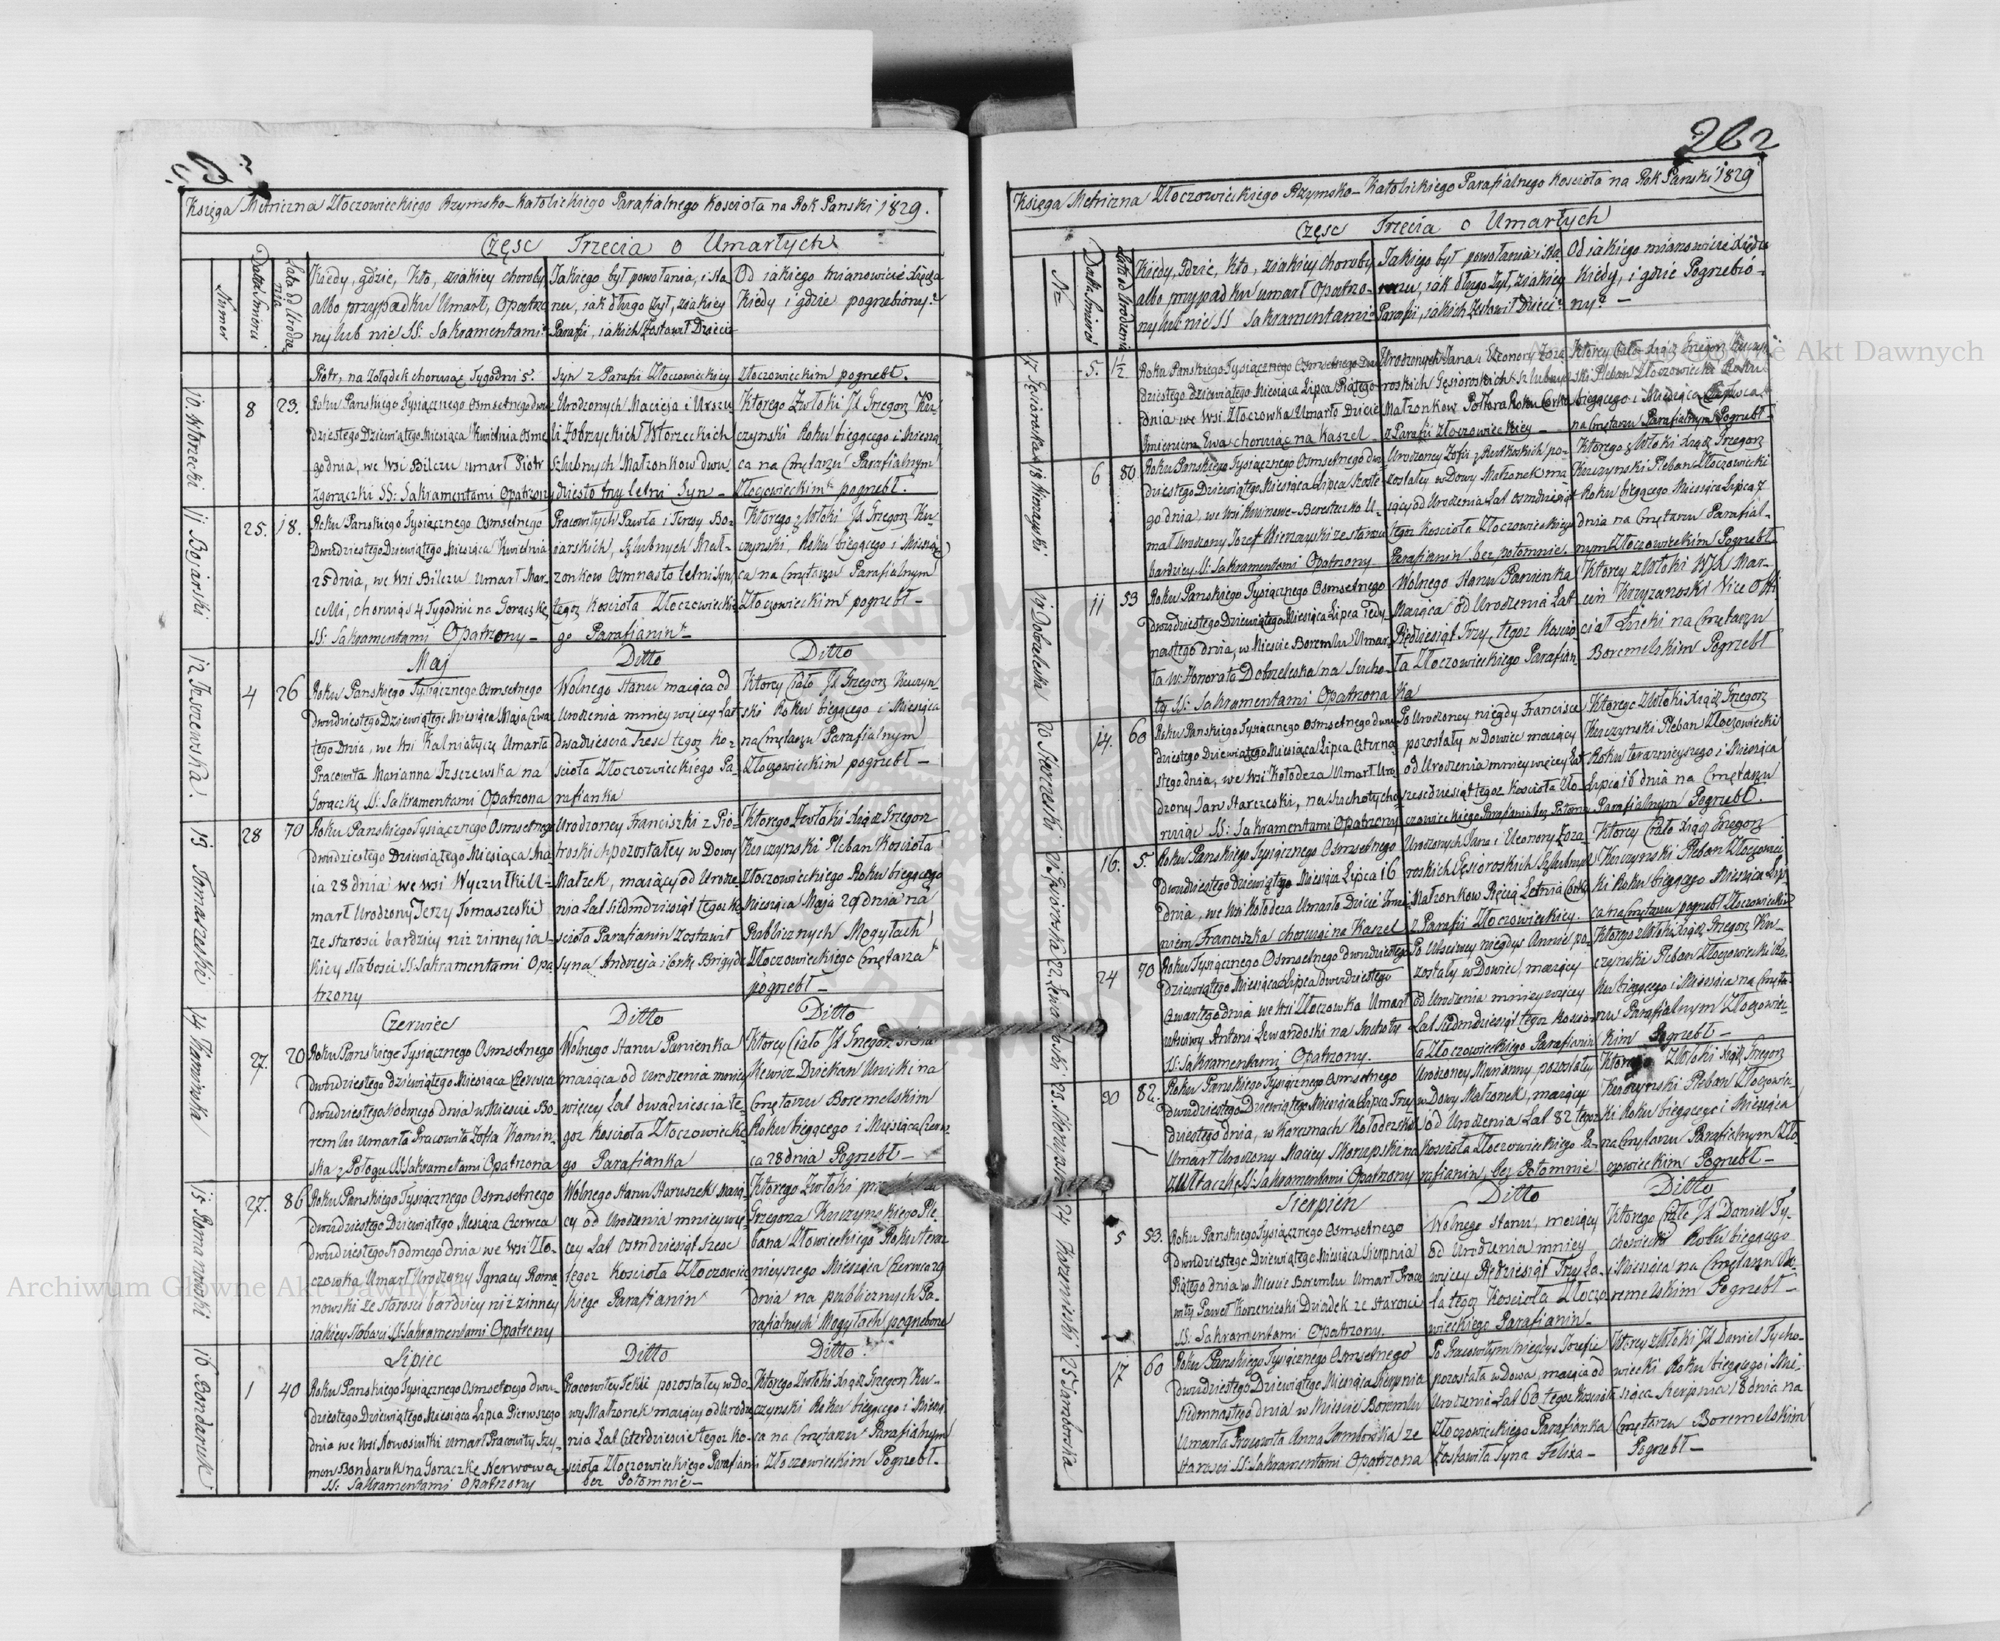 Księga Metriczna Złoczowieckiego Rzymsko-Katolickiego Parafialnego Kosciota na Rok Panski 1829.
Częsc Trzecia o Umarłych
Numer
Datta Smierci
Lata od Urodzenia
Kiedy, gdzie, Kto, z iakiey choroby
albo przypadku Umarł, Opatrzo
ny lub nie SS: Sakramentami?
Jakiego był powołania, i sta
nu, jak długo żył, z iakiey
Parafii, iakich Zostawił Dzieci?
Od iakiego mianowicie Xiędza
Kiedy i gdzie pogrzebiony?
Piotr, na Żołądek choruiąc Tygodni 5.
Syn z Parafii Złoczowieckiey
Złoczowieckim pogrzebł.
10 Wtorzecki
8
23.
Roku Panskiego Tysiącznego Osmsetnego dwu
dziestego Dziewiątego Miesiąca Kwietnia Osme
go dnia, we Wsi Bilczu umarł Piotr
z gorączki SS: Sakramentami Opatrzony
z Urodzonych Macieja i Urszu
li Zobrzyckich Wtorzeckich
Szlubnych Małzonkow dwu
dziesto trzy letni Syn –
Ktorego Zwłoki Jx Grzegorz Ku
czynski Roku bieżącego i Miesią
ca na Cmętarzu Parafialnym
Złoczowieckim pogrzebł.
11 Bojarski
25.
18.
Roku Panskiego Tysiącznego Osmsetnego
Dwudziestego Dziewiątego Miesiąca Kwietnia
25 dnia, we Wsi Bilczu umarł Mar
celli, choruiąc 4 Tygodnie na Gorączkę
SS: Sakramentami Opatrzony –
Pracowitych Pawła i Teresy Bo
iarskich, Szlubnych Mał
zonkow Osmnasto letni Syn,
tegoz Kosciota Złoczowieckie
go Parafianin
Ktorego zwłoki Jx Grzegorz Ku
czynski, Roku bieżącego i Miesią
ca na Cmętarzu Parafialnym
Złoczowieckim pogrzebł –
Maj
Ditto
Ditto
4
26
Roku Panskiego Tysiącznego Osmsetnego
dwudziestego Dziewiątego Miesiąca Maja Czwar
tego Dnia, we Wsi Kalniatycze Umarła
Pracowita Marianna
na
Gorączkę SS: Sakramentami Opatrzona
Wolnego Stanu maiąca od
Urodzenia mniey więcey Lat
dwadziescia Szesc tegoz Ko
sciota Złoczowieckiego Pa
rafianka
Ktorey Ciało Jx Grzegorz Kuczyn
ski Roku bieżącego i Miesiąca
na Cmętarzu Parafialnym
Złoczowieckim pogrzebł –
13 Tomaszeski
28
70
Roku Panskiego Tysiącznego Osmsetnego
dwudziestego Dziewiątego Miesiąca Ma
ia 28 dnia we Wsi Wyczułki U
marł Urodzony Jerzy Tomaszeski
ze starosci bardziey niz z inney ia
kiey słabosci SS: Sakramentami Opa
trzony
Urodzoney Franciszki z Pio
troskich pozostałey w Dowy
Małzek, maiący od Urodze
nia Lat Siedmdziesiąt tegoz Ko
sciota Parafianin Zostawił
Syna Andrzeja i Corkę Brigydę
Ktorego Zwłoki Xiądz Grzegorz
Kuczynski Pleban Kosciota
Złoczowieckiego Roku bieżącego
Miesiąca Maja 29 dnia na
Publicznych Mogyłach
Złoczowieckiego Cmętarza
pogrzebł –
Czerwiec
Ditto
Ditto
14 Kaminska
27.
20
Roku Panskiego Tysiącznego Osmsetnego
dwudziestego dziewiątego Miesiąca Czerwca
dwudziestego siodmego dnia w Miescie Bo
remlu umarła Pracowita Zofia Kamin
ska z Połogu SS: Sakramentami Opatrzona
Wolnego Stanu Panienka
maiąca od urodzenia mniey
więcey Lat dwadziescia te
goz Kosciota Złoczowieckie
go Parafianka
Ktorey Ciało Jx Grzegorz
kiewicz Dziekan Unicki na
Cmętarzu Boremelskim
Roku bieżącego i Miesiąca Czerw
ca 28 dnia Pogrzebł –
15 Romanowski
27.
86
Roku Panskiego Tysiącznego Osmsetnego
dwudziestego Dziewiątego Miesiąca Czerwca
dwudziestego siodmego dnia we Wsi Zło
czowka Umarł Urodzony Ignacy Roma
nowski ze starosci bardziey niz z inney
iakiey słabosci SS: Sakramentami Opatrzony
Wolnego Stanu Staruszek maią
cy od Urodzenia mniey wię
cey Lat Osmdziesiąt Szesc
tegoz Kosciota Złoczowie
ckiego Parafianin
Ktorego Zwłoki przez
Grzegorza Kuczynskiego Ple
bana Złowieckiego Roku teraz
nieyszego Miesiąca Czerwca 29
dnia na publicznych Pa
rafialnych Mogyłach pogrzebione
Lipiec
Ditto
Ditto
16 Bondaruk
1
40
Roku Panskiego Tysiącznego Osmsetnego dwu
dziestego Dziewiątego Miesiąca Lipca Pierwszego
dnia we Wsi Nowosiułki umarł Pracowity Szy
mon Bondaruk na Gorączkę Nerwową
SS: Sakramentami Opatrzony
Pracowitey Tekli pozostałey w Do
wy Małzonek maiący od Urodze
nia Lat Czterdziescie tegoz Ko
sciota Złoczowieckiego Parafian
bez Potomnie –
Ktorego Zwłoki Xiądz Grzegorz Ku
czynski Roku bieżącego i Miesią
ca na Cmętarzu Parafialnym
Złoczowieckim Pogrzebł.
262
Księga Metriczna Złoczowieckiego Rzymsko-Katolickiego Parafialnego Kosciota na Rok Panski 1829
Częsc Trzecia o Umarłych
Nr
Datta Smierci
Lata od Urodzenia
Kiedy, Gdzie, Kto, z iakiey Choroby
albo przypadku umarł Opatrzo
ny lub nie SS Sakramentami?
Jakiego był powołania i Sta
nu, iak długo Żył, z iakiey
Parafii, iakich Zostawił Dzieci?
Od iakiego mianowicie Xiędza
Kiedy, i gdzie Pogrzebio
ny? –
17 Gęsioroska
5.
1½
Roku Panskiego Tysiącznego Osmsetnego Dwu
dziestego dziewiątego Miesiąca Lipca Piątego
dnia we Wsi Złoczowka Umarło Dziecie
Imieniem Ewa choruiąc na Kaszel
Urodzonych Jana i Eleonory Łoza
roskich Gęsioroskich Szlubnych
Małzonkow Połtora Roku Corka
z Parafii Złoczowieckiey –
Ktorey Ciało Xiądz Grzegorz Kuczyn
ski Pleban Złoczowiecki Roku
bieżącego i Miesiąca Lipca
na Cmętarzu Parafialnym Pogrzebł –
18 Wierzayski
6
80.
Roku Panskiego Tysiącznego Osmsetnego dwu
dziestego Dziewiątego Miesiąca Lipca Szoste
go dnia, we Wsi
Beresteczko U
marł Urodzony Jozef Wierzayski ze starosci
bardziey SS: Sakramentami Opatrzony
Urodzoney Zofii z
po
zostałey w Dowy Małzonek ma
iący od Urodzenia Lat osmdziesiąt
tegoz Kosciota Złoczowieckiego
Parafianin bez potomnie.
Ktorego zwłoki Xiądz Grzegorz
Kuczynski Pleban Złoczowiecki
Roku bieżącego Miesiąca Lipca 7
dnia na Cmętarzu Parafial
nym Złoczowieckim Pogrzebł
11
53
Roku Panskiego Tysiącznego Osmsetnego
dwudziestego Dziewiątego Miesiąca Lipca Iedy
nastego dnia, w Miescie Boremlu Umar
ła W: Honorata
na Sucho
ty SS: Sakramentami Opatrzona
Wolnego Stanu Panienka
Maiąca od Urodzenia Lat
Pięcdziesiąt Trzy, tegoz Koscio
ta Złoczowieckiego Parafian
ka
Ktorey zwłoki WJx Mar
cin Krzyzanoski Vice Offi
ciał Łucki na Cmętarzu
Boremelskim Pogrzebł
20 Starzeski
14.
60
Roku Panskiego Tysiącznego Osmsetnego dwu
dziestego Dziewiątego Miesiąca Lipca Czterna
stego dnia, we Wsi Kołodeza Umarł Uro
dzony Jan Starzeski, na Suchoty cho
ruiąc SS: Sakramentami Opatrzony
Po Urodzoney niegdy Francisce
pozostały w Dowiec maiący
od Urodzenia mniey więcey Lat
szescdziesiąt tegoz Kosciota Zło
czowieckiego Parafianin bez Potom:
Ktorego Zwłoki Xiądz Grzegorz
Kuczynski Pleban Złoczowiecki
Roku teraznieyszego i Miesiąca
Lipca 16 dnia na Cmętarzu
Parafialnym Pogrzebł.
21 Gęsioroska
16.
5.
Roku Panskiego Tysiącznego Osmsetnego
dwudziestego Dziewiątego Miesiąca Lipca 16
dnia, we Wsi Kołodeza Umarło Dziecie Imie
niem Franciszka choruiąc na Kaszel
Urodzonych Jana i Eleonory Łoza
roskich Gęsioroskich Szlubnych
Małzonkow Pięcią Letnia Corka
z Parafii Złoczowieckiey.
Ktorey Ciało Xiądz Grzegorz
Kuczynski Pleban Złoczowiec
ki Roku bieżącego Miesiąca Lip
ca na Cmętarzu pogrzebł Złoczowieckim
22 Lewandoski
24
70
Roku Tysiącznego Osmsetnego dwudziestego
dziewiątego Miesiąca Lipca Dwudziestego
Czwartego dnia we Wsi Złoczowka Umarł
uczciwy Antoni Lewandoski na Suchoty
SS: Sakramentami Opatrzony.
Po Uczciwey niegdys Annie po
zostały w Dowiec, maiący
od Urodzenia mniey więcey
Lat Siedmdziesiąt tegoz Koscio
ta Złoczowieckiego Parafianin
Ktorego zwłoki Xiądz Grzegorz Ku
czynski Pleban Złoczowiecki Ro
ku bieżącego i Miesiąca na Cmęta
rzu Parafialnym Złoczowiec
kim Pogrzebł –
30
82.
Roku Panskiego Tysiącznego Osmsetnego
dwudziestego Dziewiątego Miesiąca Lipca Trzy
dziestego dnia, w Karczmach Kołodezskich
Umarł Urodzony Maciey Skorupski na
SS: Sakramentami Opatrzony
Urodzoney Marianny pozostałey
w Dowy Małzonek, maiący
od Urodzenia Lat 82 tegoz
Kosciota Złoczowieckiego Pa
rafianin, bez Potomnie
Ktorego Zwłoki Xiądz Grzegorz
Kuczynski Pleban Złoczowiec
ki Roku bieżącego i Miesiąca
na Cmętarzu Parafialnym Zło
czowieckim Pogrzebł –
Sierpien
Ditto
Ditto
24 Korzenieski
5
53.
Roku Panskiego Tysiącznego Osmsetnego
dwudziestego Dziewiątego Miesiąca Sierpnia
Piątego dnia w Miescie Boremlu Umarł Praco
wity Paweł Korzenieski Dziadek ze starosci
SS: Sakramentami Opatrzony.
Wolnego Stanu, maiący
od Urodzenia mniey
więcey Pięcdziesiąt Trzy La
ta tegoz Kosciota Złoczo
wieckiego Parafianin –
Ktorego Ciało Jx Daniel Ty
chowiecki Roku bieżącego
i Miesiąca na Cmętarzu Bo
remelskim Pogrzebł –
25 Jamborska
17
60
Roku Panskiego Tysiącznego Osmsetnego
dwudziestego Dziewiątego Miesiąca Sierpnia
Siedmnastego dnia w Miescie Boremlu
Umarła Pracowita Anna Jamborska ze
starosci SS: Sakramentami Opatrzona
Po Pracowitym niegdys Jozefie
pozostała w Dowa, maiąca od
Urodzenia Lat 60 tegoz Kosciota
Złoczowieckiego Parafianka
Zostawiła Syna Felixa –
Ktorey zwłoki Jx Daniel Tycho
wiecki Roku bieżącego i Mie
siąca Sierpnia 18 dnia na
Cmętarzu Boremelskim
Pogrzebł –
Archiwum Główne Akt Dawnych
Archiwum Główne Akt Dawnych